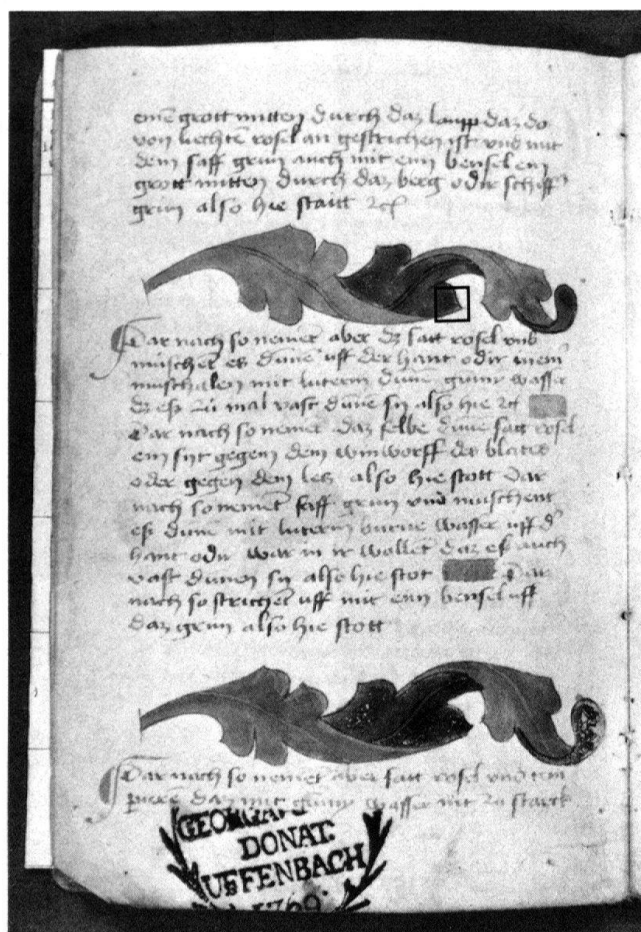 einē grott mitten durch daz laupp daz do
von liechtem rosel an gestrichen ist vnd mit
dem saff grun auch mit eim bensel ein
grott mitten durch daz berg oder schiff
grun also hie statt
Dar nach so nement aber dz satt rosel vnd
muschent es dune uff der hant odir in einer
muschalen mit luterm dunē gummi wasser
dz eß zu mal vast dunē sy also hie
Dar nach so nemēt daz selbe dunē satt rosel
ein syt gegen dem
oder gegen dem also hie stott Dar
nach so nement saff grun vnd muschent
eß dunē mit luterm wasser uff d'
hant odir war in ir wollēt daz eß auch
vast dunen sy also hie stot Dar
nach so strichēt uff mit eim bensel uff
daz grun also hie stott
Dar nach so nemet aber satt rosel vnd tem
perierē daz mit gummi wasser nit zu starck
GEORGIAE
DONAT:
UFFENBACH
1769.